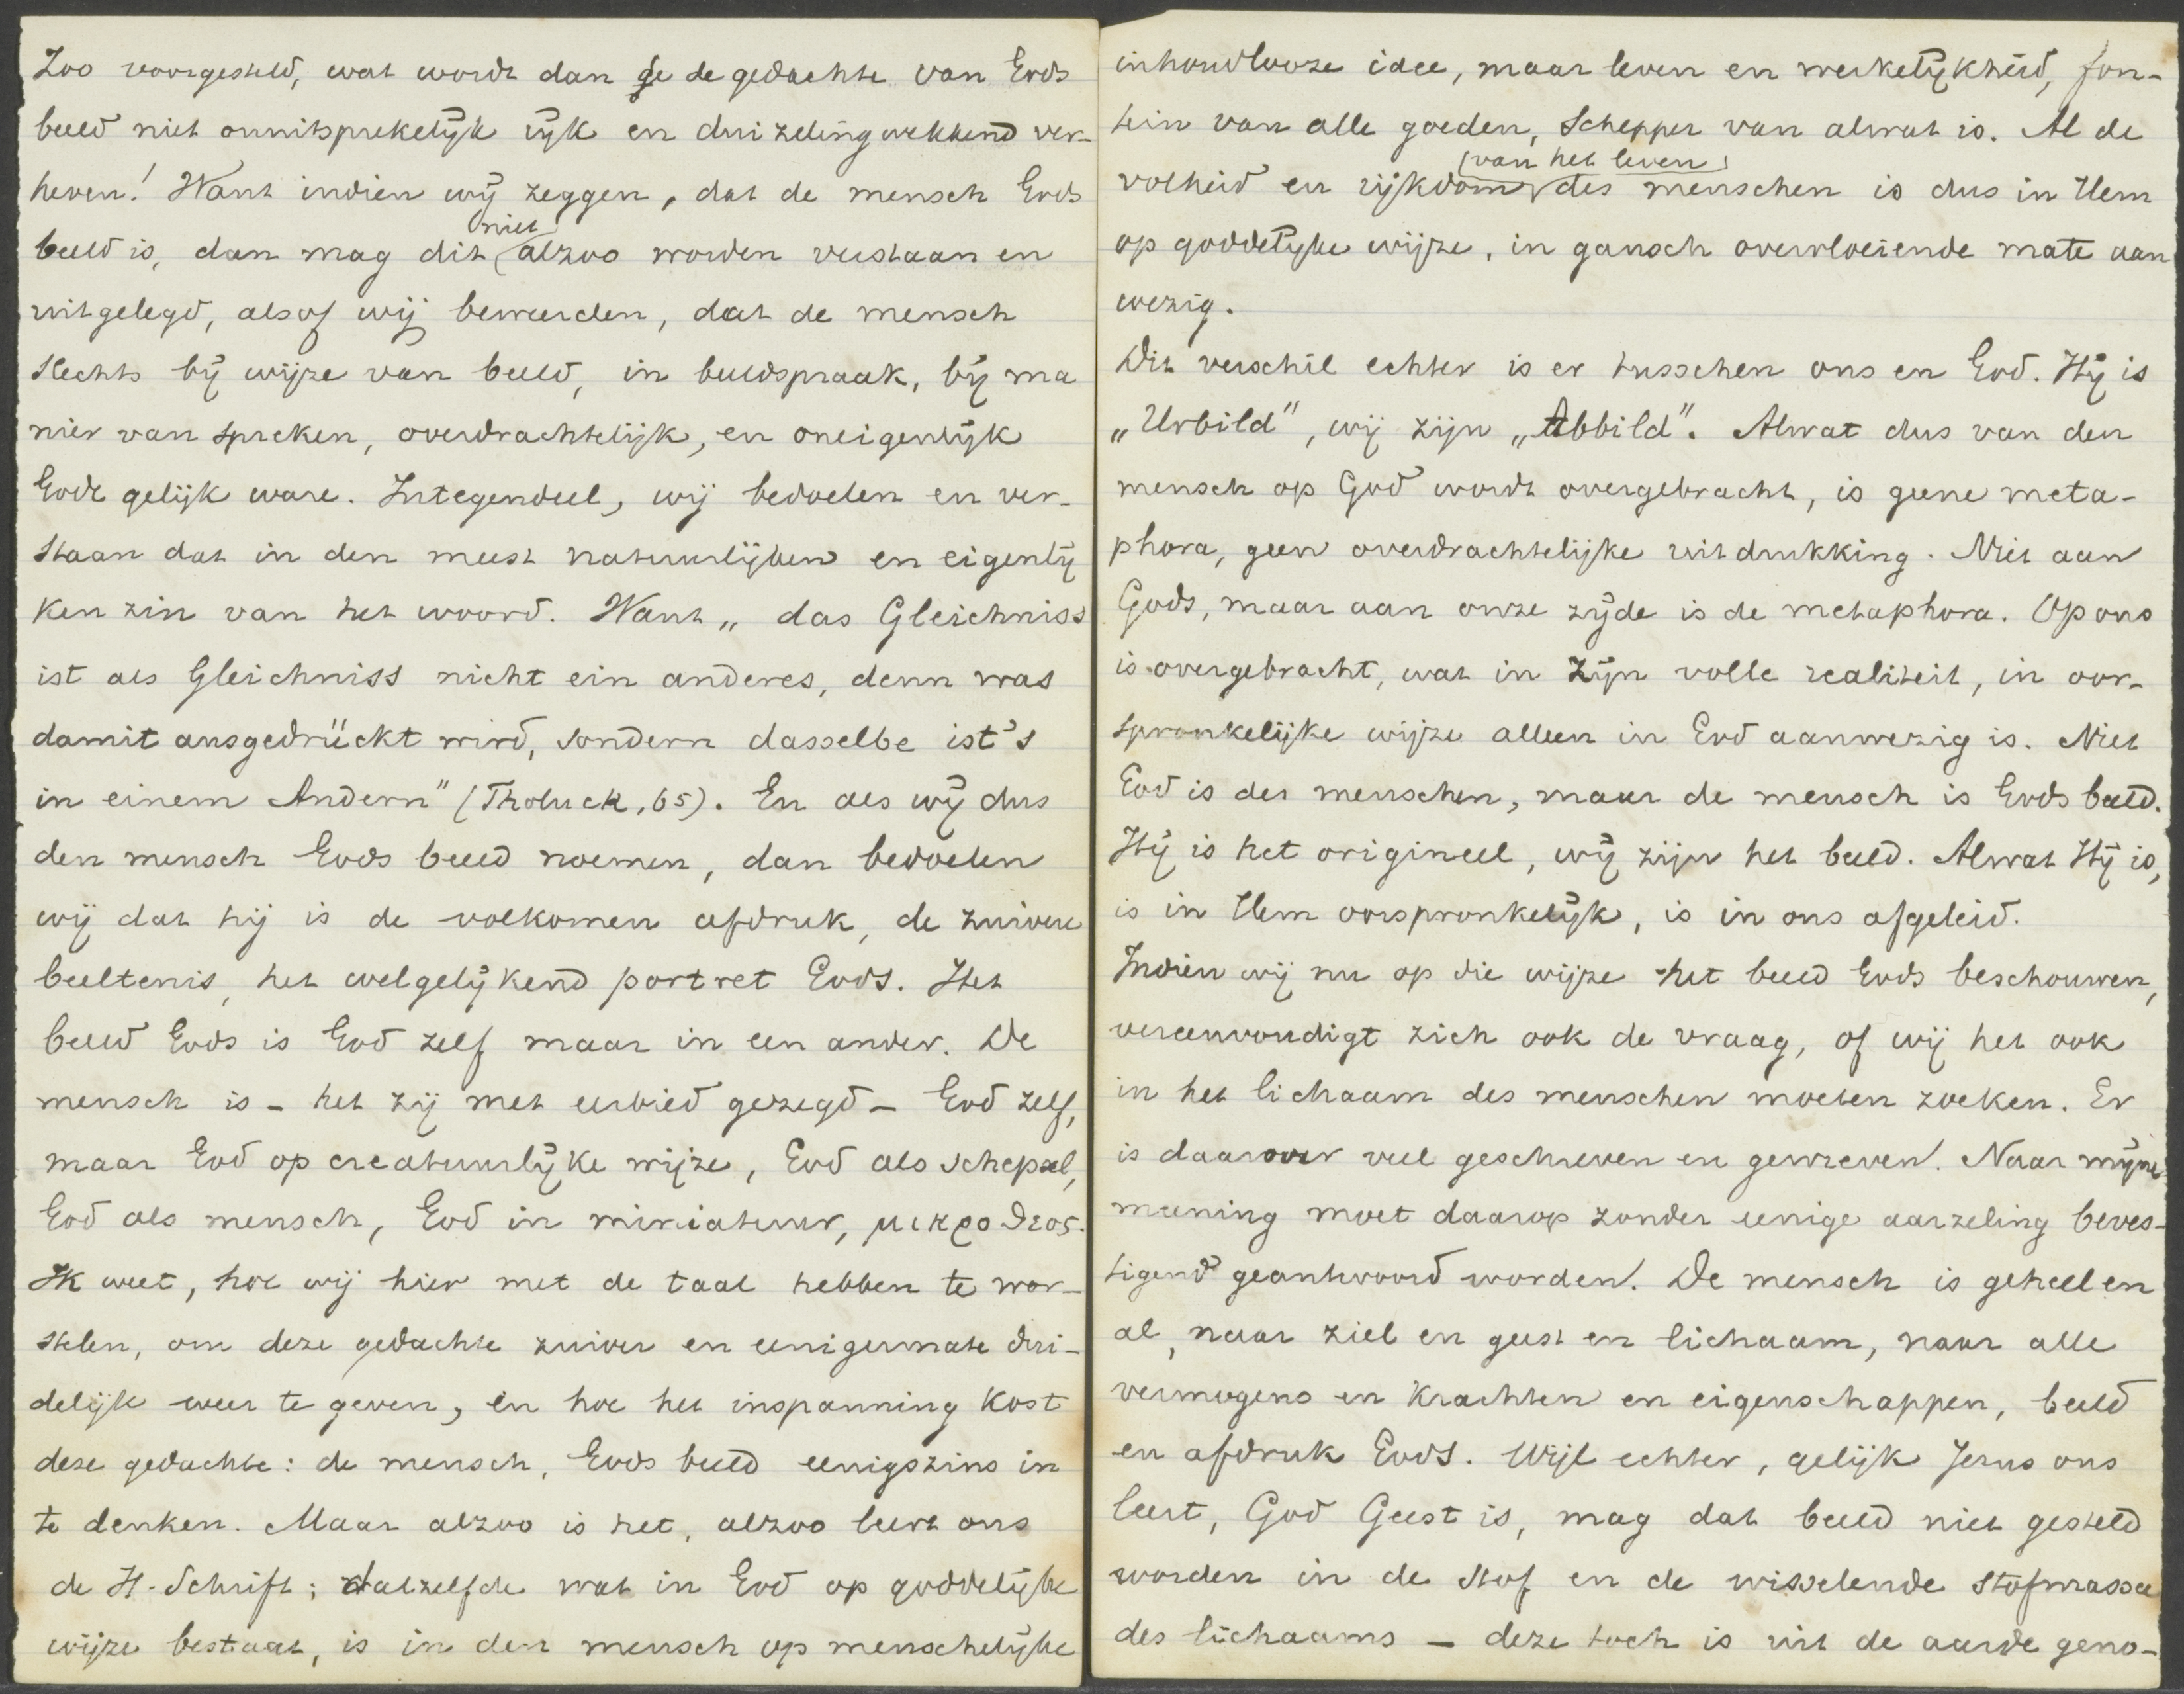 Zoo voorgesteld, wat wordt dan de gedachte van Gods
beeld niet onuitsprekelijk rijk en duizelingwekkend ver-
heven! Want indien wij zeggen, dat de mensch Gods
beeld is, dan mag dit niet alzoo worden verstaan en
uitgelegd, alsof wij beweerden, dat de mensch
slechts bij wijze van beeld, in beeldspraak, bij ma
nier van spreken, overdrachtelijk, en oneigenlijk
Gode gelijk ware. Integendeel, wij bedoelen en ver-
staan dat in den meest natuurlijken en eigenlij
ken zin van het woord. Want „das Gleichniss
ist als Gleichniss nicht ein anderes, denn was
damit ausgedrückt wird, sondern dasselbe ist's
in einem Andern" (Tholuck, 65). En als wij dus
den mensch Gods beeld noemen, dan bedoelen
wij dat hij is de volkomen afdruk, de zuivere
beeltenis, het welgelijkend portret Gods. Het
beeld Gods is God zelf maar in een ander. De
mensch is - het zij met eerbied gezegd - God zelf,
maar God op creatuurlijke wijze, God als schepsel,
God als mensch, God in miniatuur, μικροθεος.
Ik weet, hoe wij hier met de taal hebben te wor-
stelen, om deze gedachte zuiver en eenigermate dui-
delijk weer te geven, en hoe het inspanning kost
deze gedachte: de mensch, Gods beeld eenigszins in
te denken. Maar alzoo is het, alzoo leert ons
de H. Schrift; datzelfde wat in God op goddelijke
wijze bestaat, is in den mensch op menschelijke
inhoudlooze idee, maar leven en werkelijkheid, fon-
tein van alle goeden, Schepper van alwat is. Al de
volheid en rijkdom van het leven des menschen is dus in Hem
op goddelijke wijze, in gansch overvloeiende mate aan
wezig.
Dit verschil echter is er tusschen ons en God. Hij is
„Urbild", wij zijn „Abbild". Alwat dus van den
mensch op God wordt overgebracht, is geene meta-
phora, geen overdrachtelijke uitdrukking. Niet aan
Gods, maar aan onze zijde is de metaphora. Op ons
is overgebracht, wat in zijn volle realiteit, in oor-
spronkelijke wijze alleen in God aanwezig is. Niet
God is des menschen, maar de mensch is Gods beeld.
Hij is het origineel, wij zijn het beeld. Alwat Hij is,
is in Hem oorspronkelijk, is in ons afgeleid.
Indien wij nu op die wijze het beeld Gods beschouwen,
vereenvoudigt zich ook de vraag, of wij het ook
in het lichaam des menschen moeten zoeken. Er
is daarover veel geschreven en gewreven. Naar mijne
meening moet daarop zonder eenige aarzeling beves-
tigend geantwoord worden. De mensch is geheel en
al, naar ziel en geest en lichaam, naar alle
vermogens en krachten en eigenschappen, beeld
en afdruk Gods. Wijl echter, gelijk Jezus ons
leert, God Geest is, mag dat beeld niet gesteld
worden in de stof en de wisselende stofmassa
des lichaams - deze toch is uit de aarde geno-